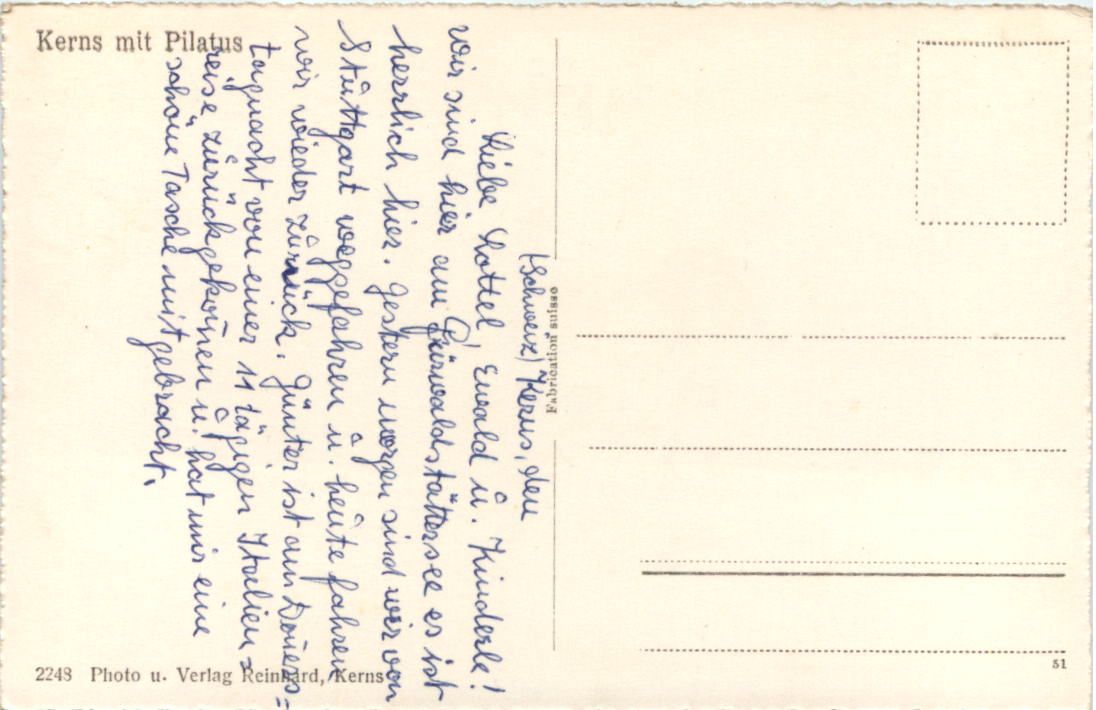 Kerns mit Pilatus
(Schweiz) Kerns, den
Liebe Lottel, Ewald u. Kinderle!
wir sind hier am Grünwaldstättersee es ist
herrlich hier. Gestern morgen sind wir von
Stuttgart weggefahren u. heute fahren
wir wieder zurück. Günter ist am Doners=
tagnacht von einer 11 tägigen Italien=
reise zurückgekom̄en u. hat mir eine
schöne Tasche mitgebracht.
Fabrication suisse
2248 Photo u. Verlag Reinhard, Kerns
51